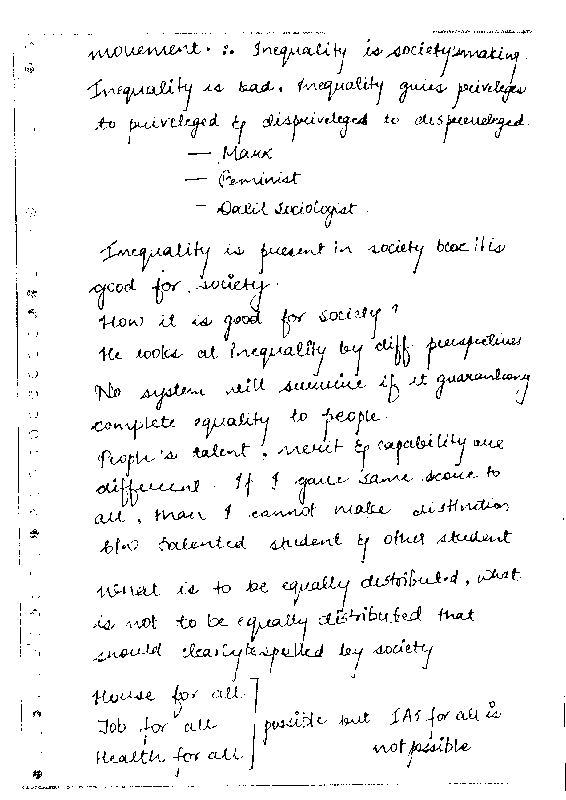 movement. ∴ Inequality is society's making.
Inequality is bad. Inequality gives priveleges
to priveleged & dispriveleges to dispriveleged.
— Marx
— Feminist
– Dalit Sociologist.
Inequality is present in society bcoz it is
good for society.
How it is good for society?
He looks at Inequality by diff perspectives
No system will survive if it guaranteeing
complete equality to people.
People's talent, merit & capability are
different. If I gave same score to
all, than I cannot make distinction
b/w talented student & other student
What is to be equally distributed, what
is not to be equally distributed that
should clearly spelled by society
House for all
Job for all
Health for all
possible but IAS for all is
not possible